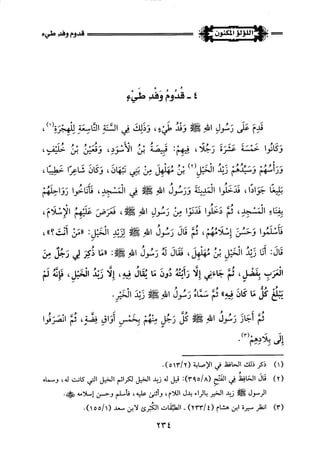 اللؤلؤ المكنون
قدوم وفد طيء
٤ - قُدُومُ وَفْدِ طَيِّءٍ
قَدِمَ عَلَى رَسُولِ اللهِ ﷺ وَفْدُ طَيِّءٍ، وَذَلِكَ فِي السَّنَةِ التَّاسِعَةِ لِلْهِجْرَةِ(١)،
وَكَانُوا خَمْسَةَ عَشَرَ رَجُلًا، فِيهِمْ: قَبِيصَةُ بْنُ الْأَسْوَدِ، وَقُعَيْنُ بْنُ خُلَيْفٍ،
وَرَأْسُهُمْ وَسَيِّدُهُمْ زَيْدُ الْخَيْلِ(٢) بْنُ مُهَلْهِلٍ مِنْ بَنِي نَبْهَانَ، وَكَانَ شَاعِرًا خَطِيبًا،
بَلِيغًا جَوَادًا، فَدَخَلُوا الْمَدِينَةَ وَرَسُولُ اللهِ ﷺ فِي الْمَسْجِدِ، فَأَنَاخُوا رَوَاحِلَهُمْ
بِفِنَاءِ الْمَسْجِدِ، ثُمَّ دَخَلُوا فَدَنَوْا مِنْ رَسُولِ اللهِ ﷺ، فَعَرَضَ عَلَيْهِمُ الْإِسْلَامَ،
فَأَسْلَمُوا وَحَسُنَ إِسْلَامُهُمْ، ثُمَّ قَالَ رَسُولُ اللهِ ﷺ لِزَيْدِ الْخَيْلِ: «مَنْ أَنْتَ؟»،
قَالَ: أَنَا زَيْدُ الْخَيْلِ بْنُ مُهَلْهِلٍ، فَقَالَ لَهُ رَسُولُ اللهِ ﷺ: «مَا ذُكِرَ لِي رَجُلٌ مِنَ
الْعَرَبِ بِفَضْلٍ، ثُمَّ جَاءَنِي إِلَّا رَأَيْتُهُ دُونَ مَا يُقَالُ فِيهِ، إِلَّا زَيْدُ الْخَيْلِ، فَإِنَّهُ لَمْ
يَبْلُغْ كُلَّ مَا كَانَ فِيهِ» ثُمَّ سَمَّاهُ رَسُولُ اللهِ ﷺ زَيْدَ الْخَيْرِ.
ثُمَّ أَجَازَ رَسُولُ اللهِ ﷺ كُلَّ رَجُلٍ مِنْهُمْ بِخَمْسِ أَوَاقٍ فِضَّةٍ، ثُمَّ انْصَرَفُوا
إِلَى بِلَادِهِمْ(٣).
(١) ذكر ذلك الحافظ في الإصابة (٥١٣/٢).
(٢) قال الحافظ في الفتح (٣٩٥/٨): قيل له زيد الخيل لكرائم الخيل التي كانت له، وسماه
الرسول ﷺ زيد الخير بالراء بدل اللام، وأثنى عليه، فأسلم وحسن إسلامه ﷺ.
(٣) انظر سيرة ابن هشام (٢٣٣/٤) - الطبقات الكبرى لابن سعد (١٥٥/١).
٢٣٤